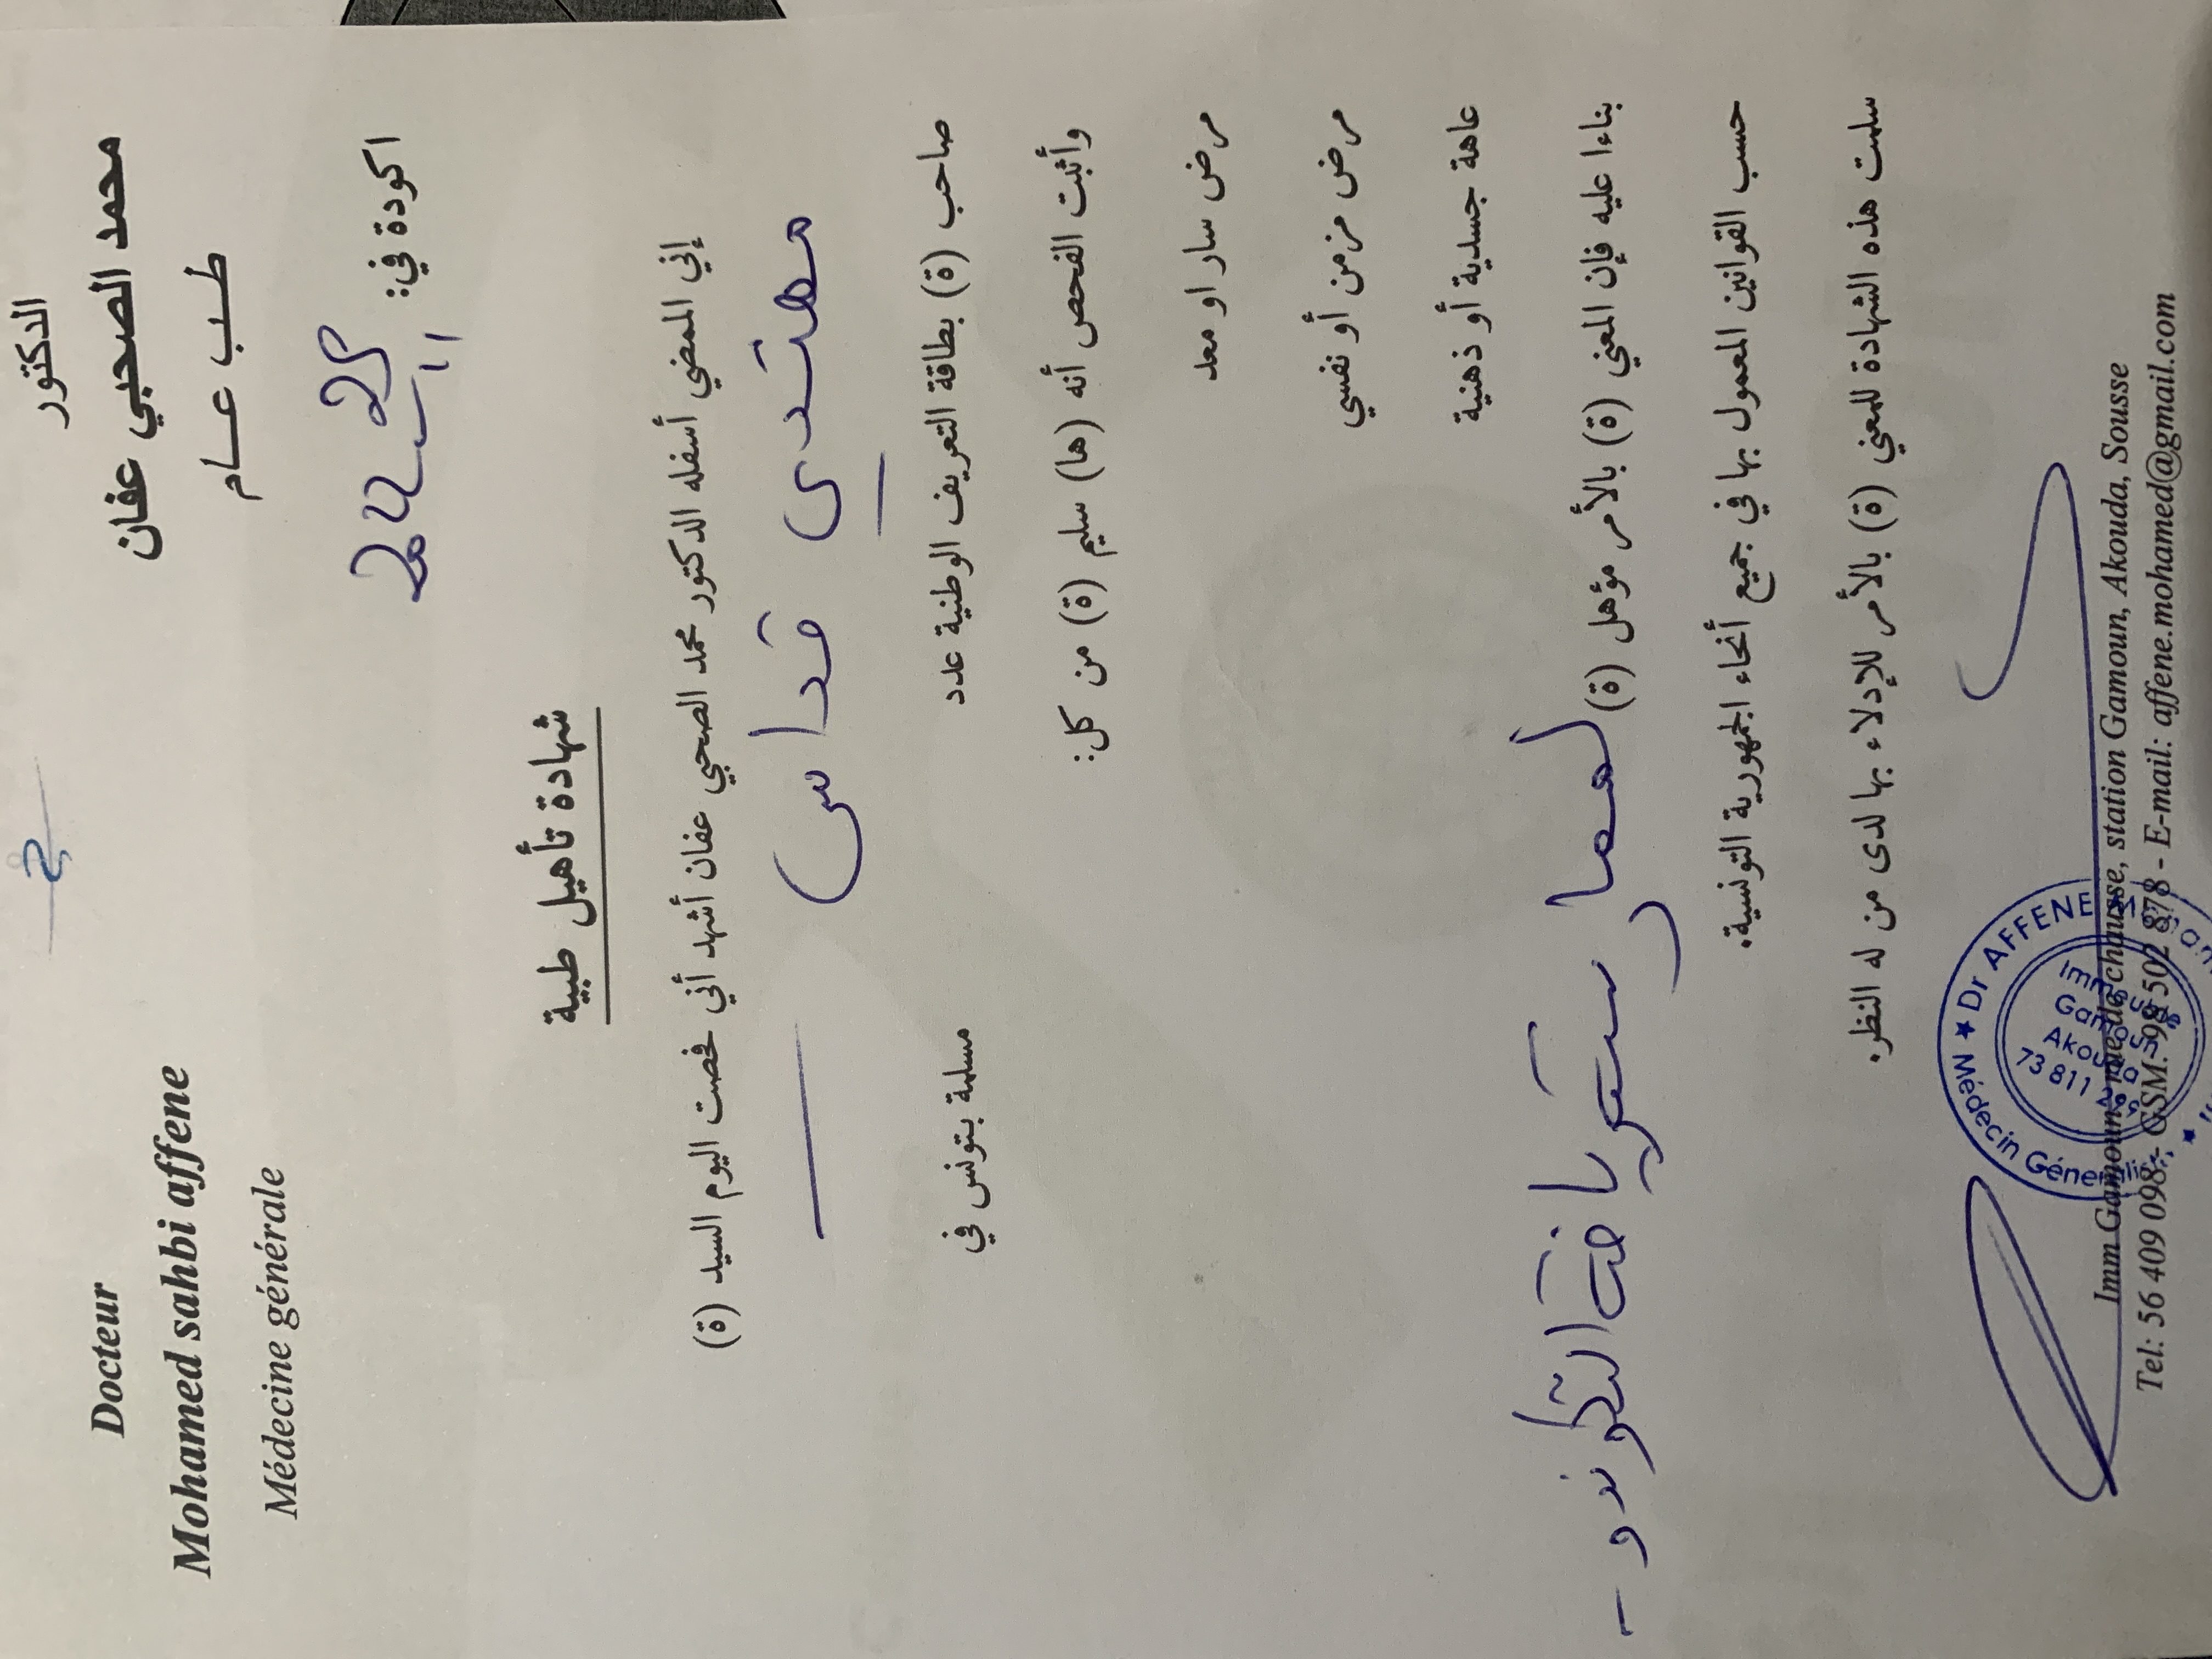 الدكتور
محمد الصحبي عفان
طب عام
Docteur
Mohamed sahbi affene
Médecine générale
اكودة في:
شهادة تأهيل طبية
إني الممضي أسفله الدكتور محمد الصحبي عفان أشهد أني فحصت اليوم السيد (ة)
مهتدي قداس
صاحب (ة) بطاقة التعريف الوطنية عدد مسلمة بتونس في
وأثبت الفحص أنه (ها) سليم (ة) من كل:
مرض سار او معد
مرض مزمن أو نفسي
عاهة جسدية أو ذهنية
بناءا عليه فإن المعني (ة) بالأمر مؤهل (ة) رياضة التكوندو -
حسب القوانين المعمول بها في جميع أنحاء الجمهورية التونسية.
سلمت هذه الشهادة للمعني (ة) بالأمر للإدلاء بها لدى من له النظر.
★ Dr AFFENE
Médecin Géneraliste
Immeuble
Gamoun
Akouda
73 811
Imm Gamoun me de chausse, station Gamoun, Akouda, Sousse
Tel: 56 409 098 - GSM: 98 502 878 - E-mail: affene.mohamed@gmail.com